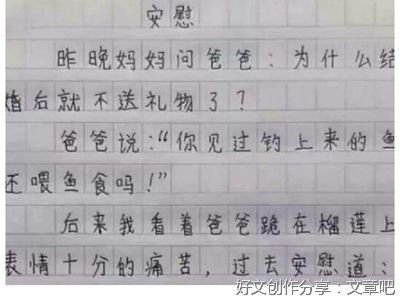 安慰
昨晚妈妈问爸爸：为什么结
婚后就不送礼物了？
爸爸说：“你见过钓上来的鱼
还喂鱼食吗！”
后来我看着爸爸跪在榴莲上
表情十分的痛苦，过去安慰道：
好文创作分享：文章吧